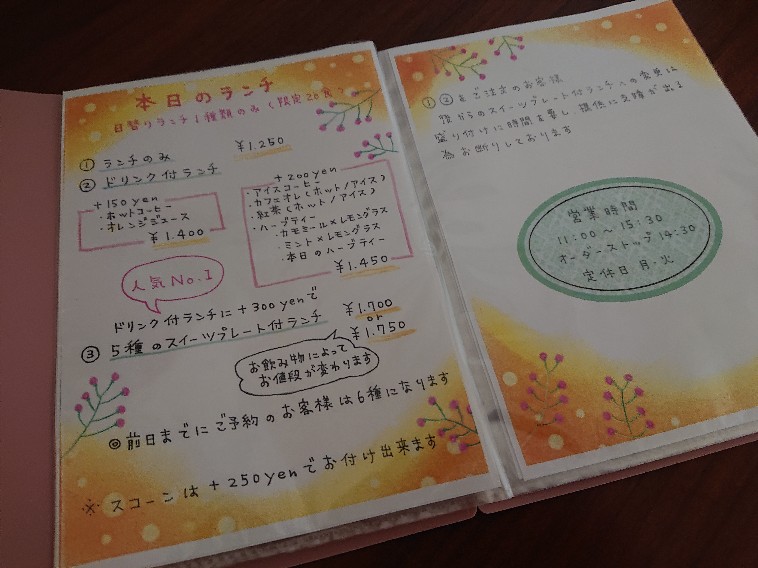 本日のランチ
日替りランチ1種類のみ(限定20食)
① ランチのみ ¥1.250
② ドリンク付ランチ
+150yen
・ホットコーヒー
・オレンジジュース
¥1.400
+200yen
・アイスコーヒー
・カフェオレ(ホット/アイス)
・紅茶(ホット/アイス)
・ハーブティー
カモミール×レモングラス
ミント×レモングラス
・本日のハーブティー
¥1.450
人気No.1
ドリンク付ランチに+300yenで
③ 5種のスイーツプレート付ランチ
¥1.700
or
¥1.750
お飲み物によって
お値段が変わります
◎前日までにご予約のお客様は6種になります
※スコーンは+250yenでお付け出来ます
①②をご注文のお客様
後からのスイーツプレート付ランチへの変更は
盛り付けに時間を要し、提供に支障が出る
為お断りしております
営業時間
11:00〜15:30
オーダーストップ14:30
定休日:月・火